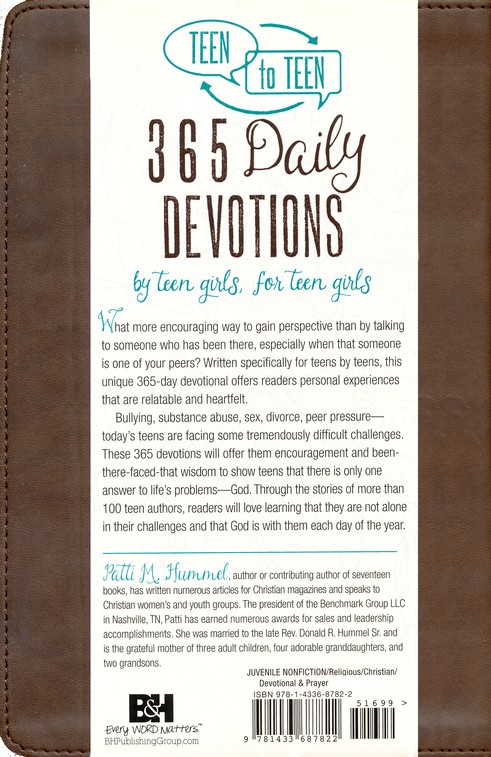 TEEN
to TEEN
365 Daily
DEVOTIONS
by teen girls, for teen girls
What more encouraging way to gain perspective than by talking
to someone who has been there, especially when that someone
is one of your peers? Written specifically for teens by teens, this
unique 365-day devotional offers readers personal experiences
that are relatable and heartfelt.
Bullying, substance abuse, sex, divorce, peer pressure—
today's teens are facing some tremendously difficult challenges.
These 365 devotions will offer them encouragement and been-
there-faced-that wisdom to show teens that there is only one
answer to life's problems—God. Through the stories of more than
100 teen authors, readers will love learning that they are not alone
in their challenges and that God is with them each day of the year.
Patti M. Hummel, author or contributing author of seventeen
books, has written numerous articles for Christian magazines and speaks to
Christian women's and youth groups. The president of the Benchmark Group LLC
in Nashville, TN, Patti has earned numerous awards for sales and leadership
accomplishments. She was married to the late Rev. Donald R. Hummel Sr. and
is the grateful mother of three adult children, four adorable granddaughters, and
two grandsons.
JUVENILE NONFICTION/Religious/Christian/
Devotional & Prayer
ISBN 978-1-4336-8782-2
51699 >
9 781433 687822
B&H
Every WORD Matters™
BHPublishingGroup.com